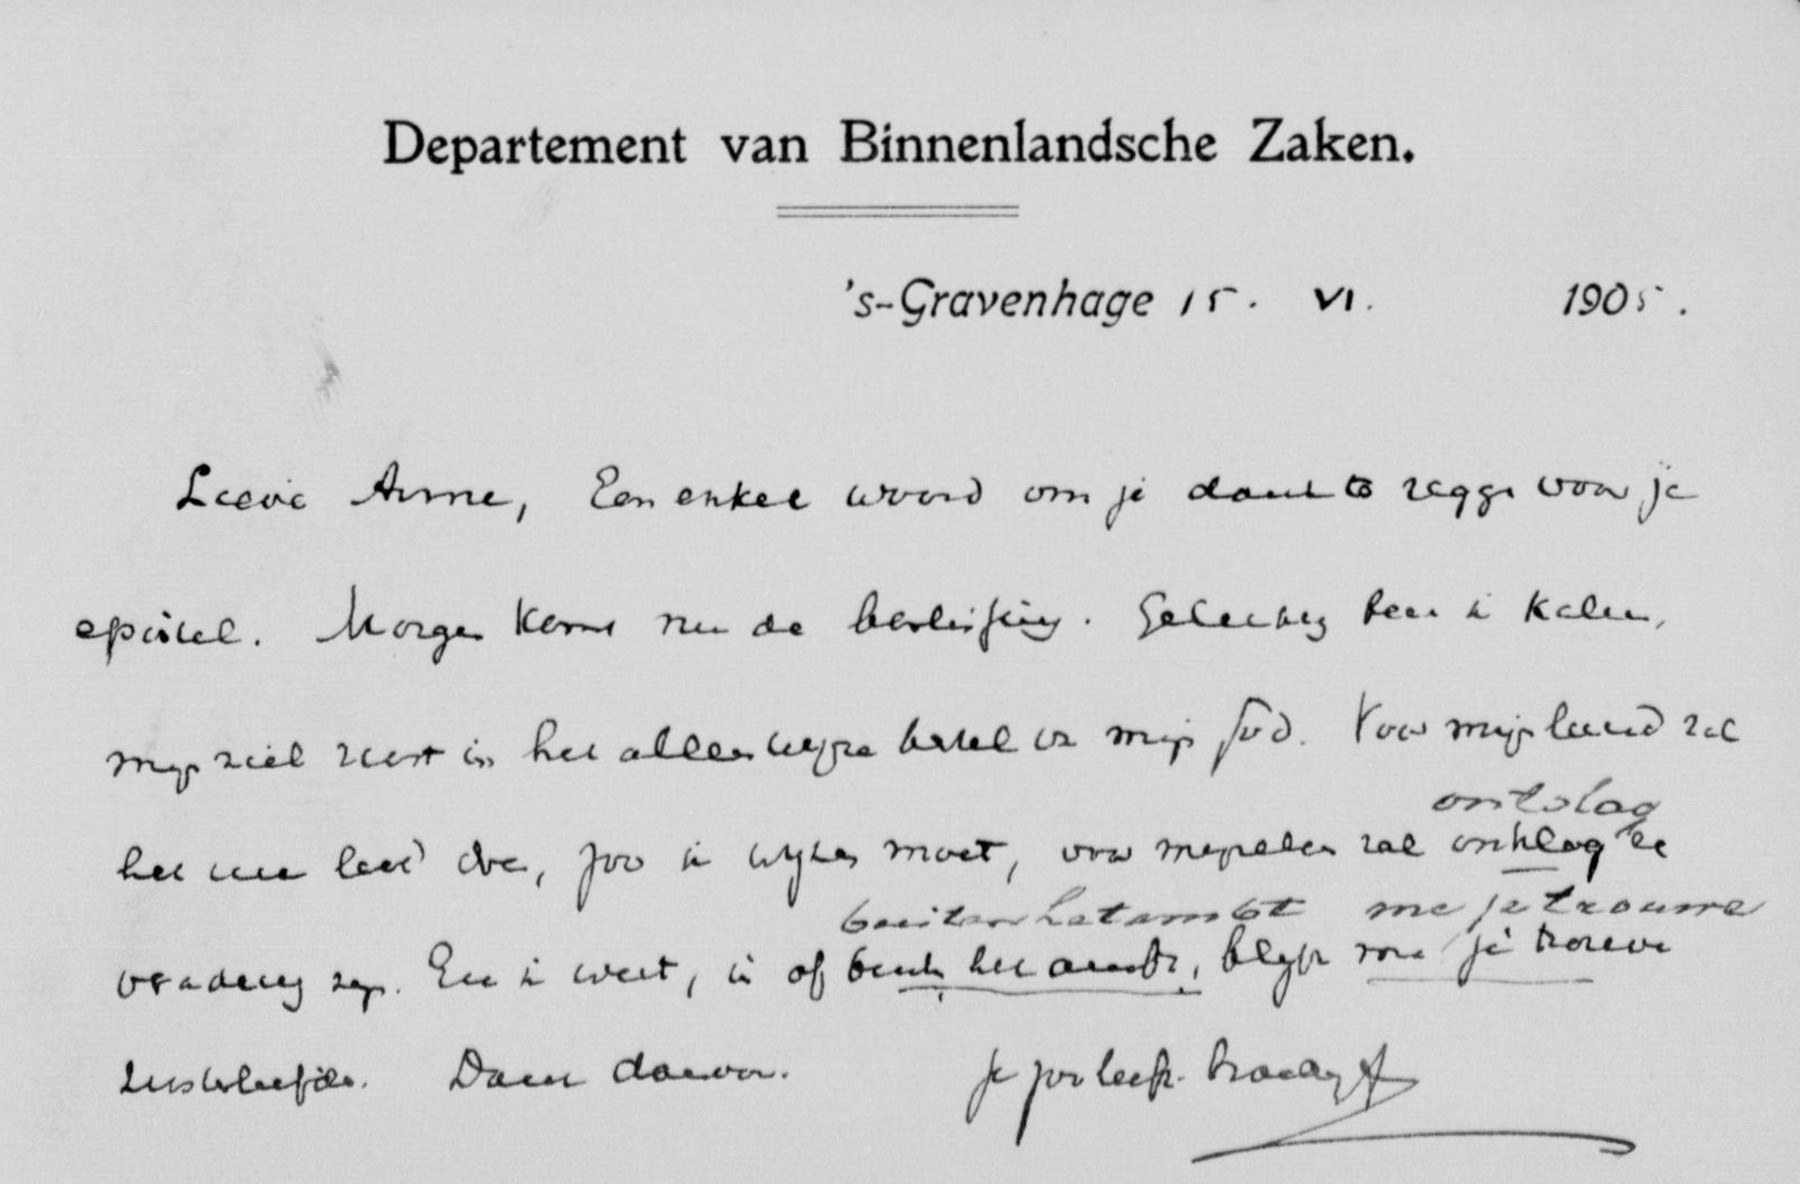 Departement van Binnenlandsche Zaken.
's-Gravenhage 15. VI. 1905.
Lieve Anne, Een enkel woord om je dank te zegge voor je
epistel. Morgen komt nu de beslissing. Gelukkig ben ik kalm,
mijn ziel rust in het allerwijze bestel van mijn God. Voor mijn land zal
ontslag
het me leed doen, zoo ik wijken moet, voor mezelven zal ontslag ee
buiten het ambt me je trouwe
verademing zijn. En ik weet, in of buiten het ambt, blijft me je trouwe
zusterliefde. Dank daarvoor. Je zoo liefh. broeder